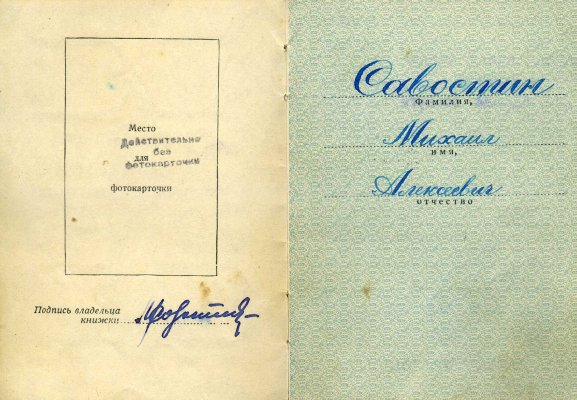 Место
Действительно
без
для
фотокарточки
фотокарточки
Подпись владельца
книжки
Савостин
Фамилия,
Михаил
имя,
Алексеевич
отчество